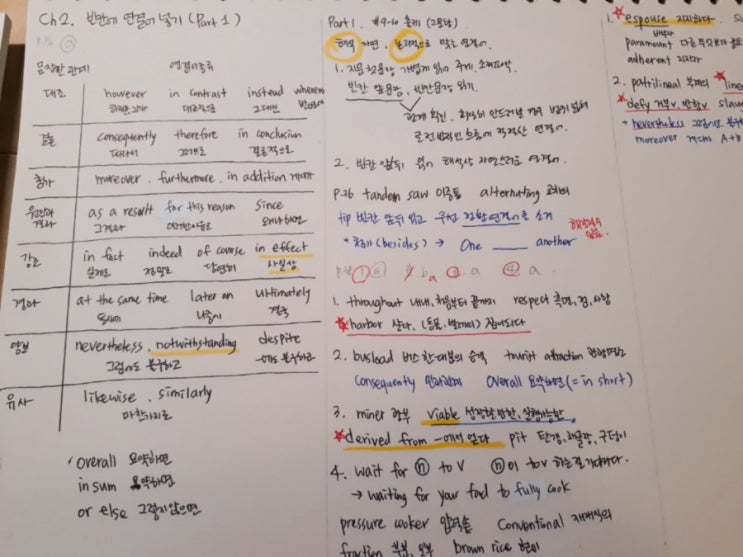 Ch 2. 빈칸에 연결어 넣기 (Part 1)
P.16
문장관 관계 연결어 종류
대조 however in contrast instead whereas
하지만, 그러나 대조적으로 그대신
결론 consequently therefore in conclusion
그러므로 결론적으로
첨가 moreover. furthermore. in addition 게다가
원인과 결과 as a result for this reason since
그결과 이러한 이유로 왜냐하면
강조 in fact indeed of course in effect
실제로 정말로 당연히 사실상
결과 at the same time later on ultimately
동시에 나중에 결국
양보 nevertheless. notwithstanding despite
그럼에도 불구하고 -에도 불구하고
유사 likewise. similarly
마찬가지로
overall 요약하면
in sum 요약하면
or else 그렇지 않으면
Part 1. #9-10 문제 (2문제)
해석 자연, 논리적으로 맞는 연결어.
1. 지문 첫문장 가볍게 읽어 주제, 소재파악.
빈칸 앞문장, 뒷문장 읽기.
흐름에 적절한 연결어.
2. 빈칸 앞뒤 읽어 해석상 자연스러운 연결어.
P.26 tandem saw 이중톱 alternating 교대의
tip 빈칸 앞뒤 읽고 우선 적합 연결어로 소거
* 첨가 (besides) → One ____ another
1. throughout 내내, 처음부터 끝까지 respect 측면, 점, 사항
harbor 살다. 잠어지다
2. busload 버스 한 대분의 승객 tourist attraction 관광명소
consequently Overall 요약하면 (= in short)
3. miner 광부 viable 성장할만한, 실행가능한
derived from -에서 얻다 pit 탄갱, 채굴장, 구덩이
4. wait for ⓝ to V ⓝ이 to V 하는걸 기다리다.
→ waiting for your food to fully cook
pressure cooker 압력솥 Conventional 재래식의
fraction 부분, 일부 brown rice 현미
1. espouse 지지하다.
paramount 다른 무엇보다
adherent 지지자
2. patrilineal 부계의
defy 거부v, 반항v
* nevertheless 그럼에도 불구
moreover 게다가 A+B